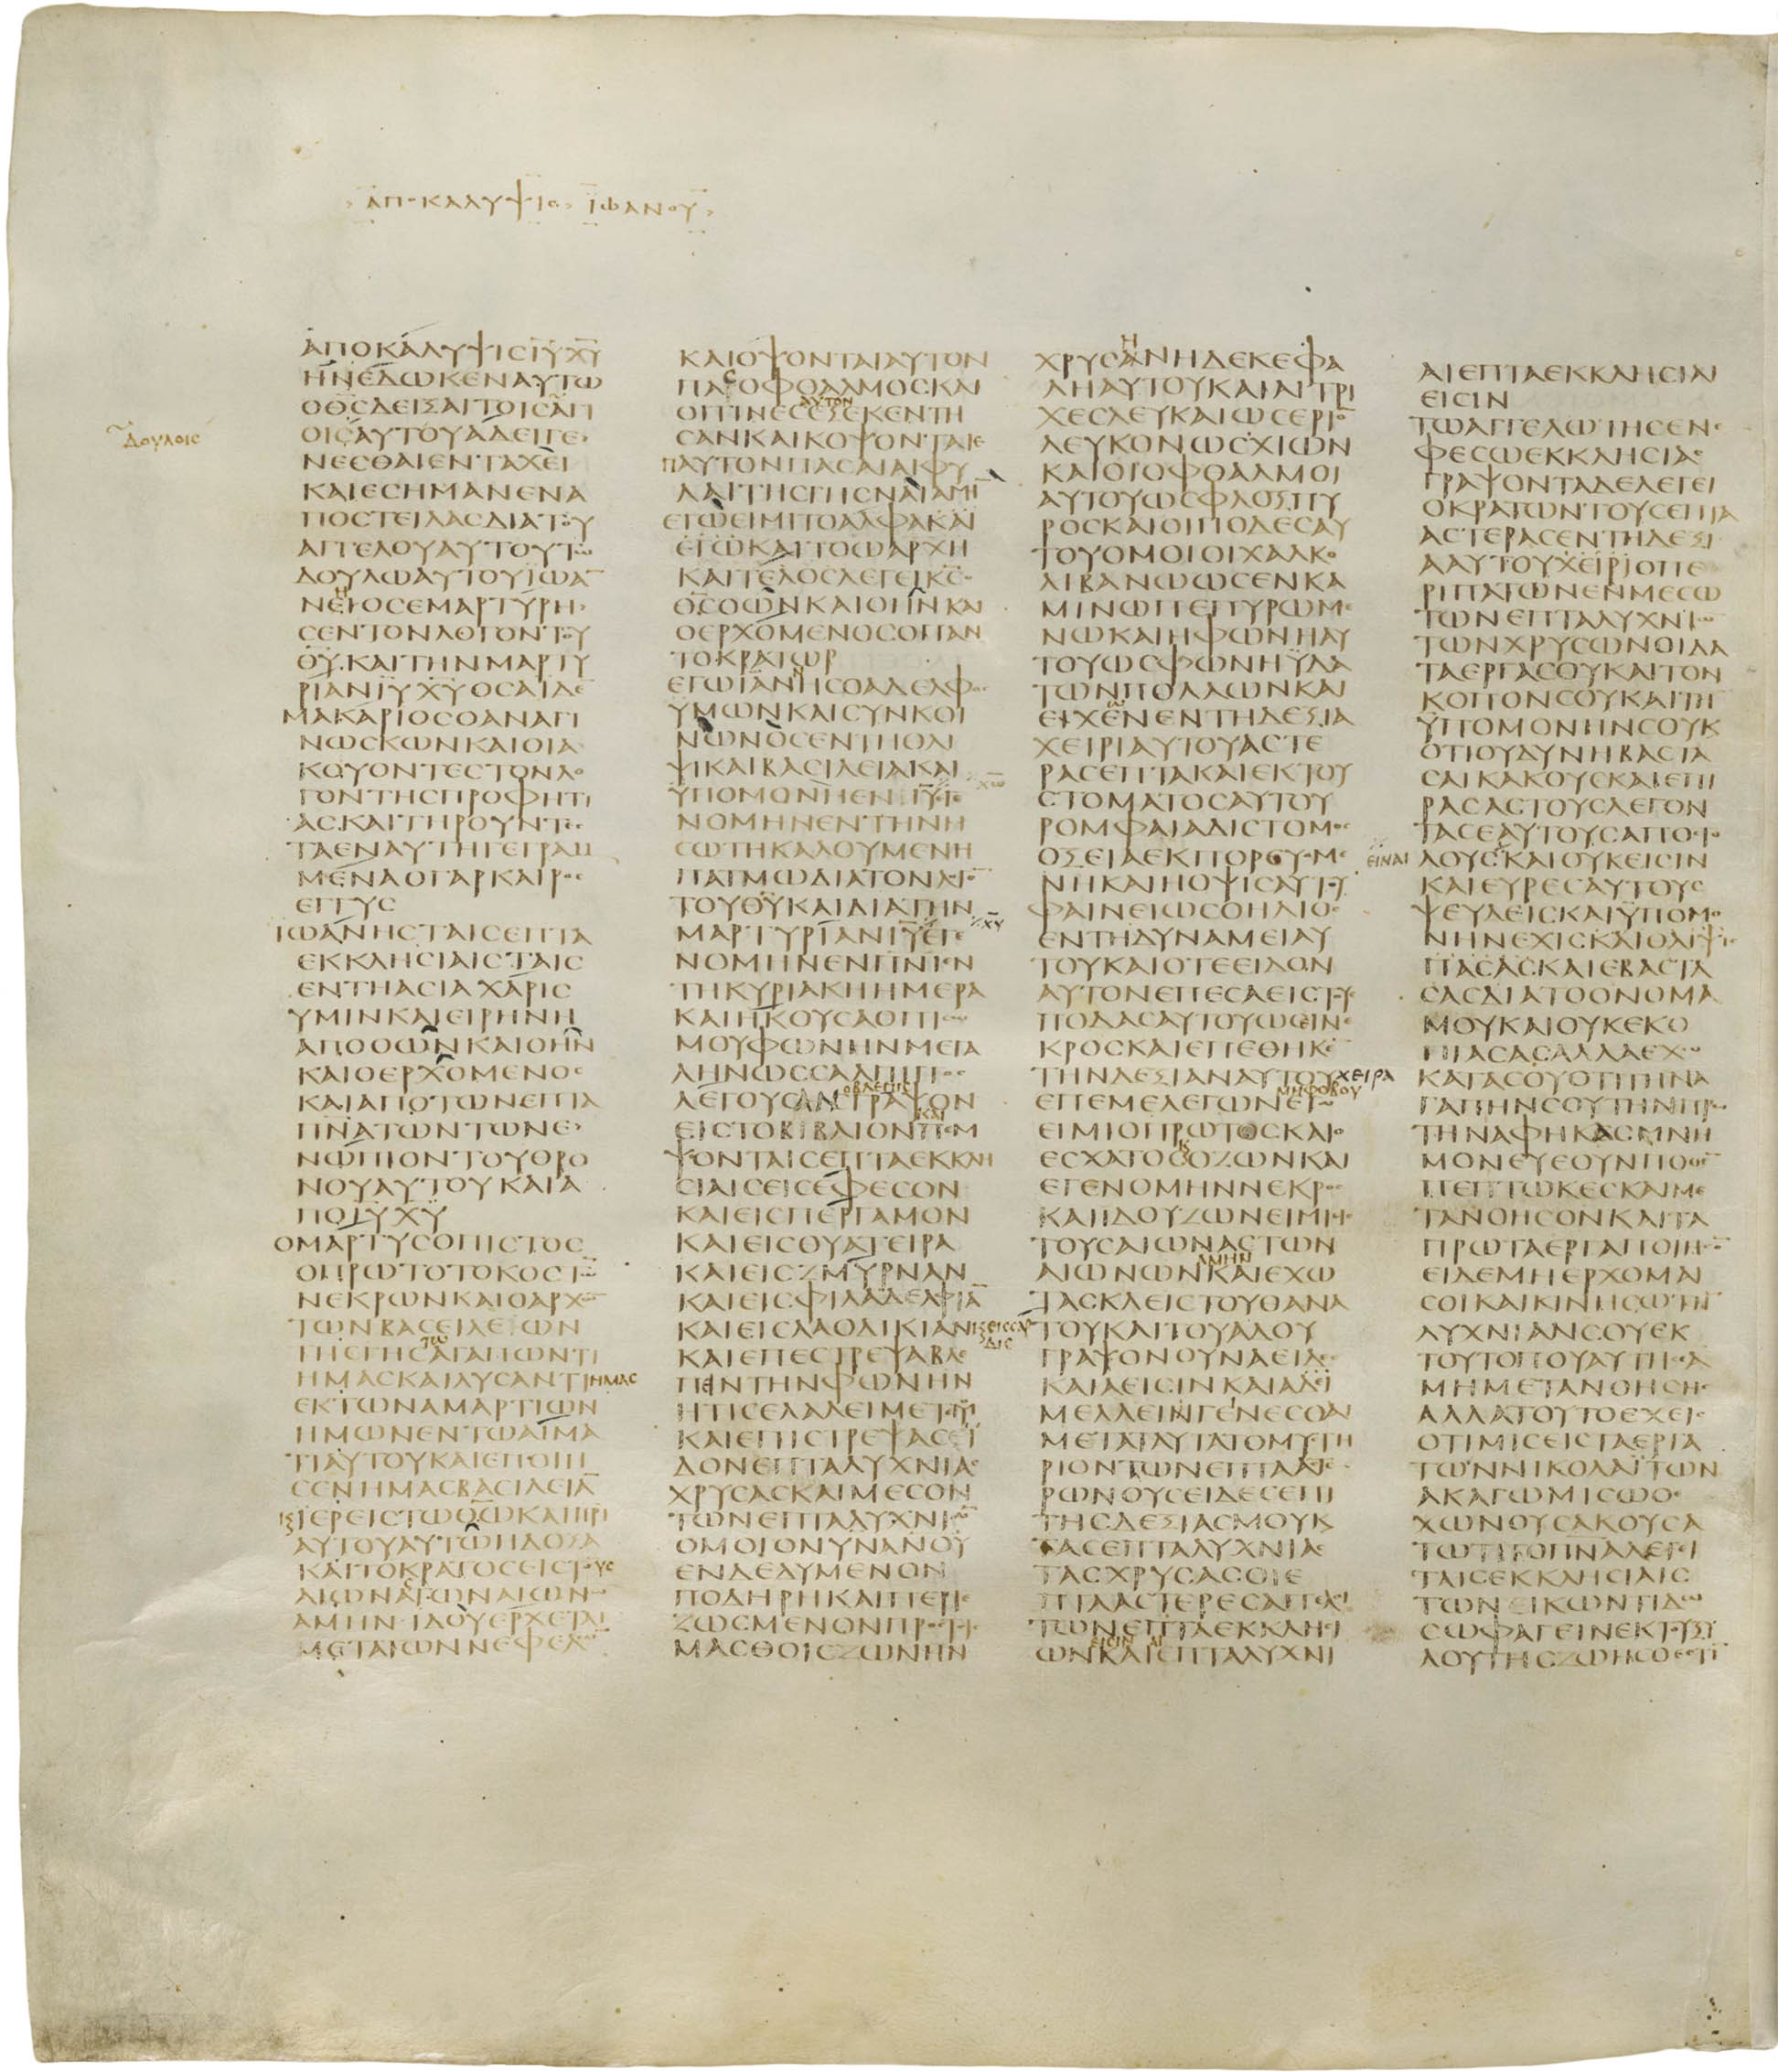 ΑΠΟΚΑΛΥΨΙϹ ΙΩΑΝΟΥ
ΔΟΥΛΟΙϹ
ΑΠΟΚΑΛΥΨΙϹΙΥΧΥ
ΗΝΕΔΩΚΕΝΑΥΤΩ
ΟΘϹΔΕΙΞΑΙΤΟΙϹΑΓΙ
ΟΙϹΑΥΤΟΥΑΔΕΙΓΕ
ΝΕϹΘΑΙΕΝΤΑΧΕΙ
ΚΑΙΕϹΗΜΑΝΕΝΑ
ΠΟϹΤΕΙΛΑϹΔΙΑΤΟΥ
ΑΓΓΕΛΟΥΑΥΤΟΥΤΩ
ΔΟΥΛΩΑΥΤΟΥΙΩΑ̅
ΝΕΙΟϹΕΜΑΡΤΥΡΗ
ϹΕΝΤΟΝΛΟΓΟΝΤΟΥ
ΘΥΚΑΙΤΗΝΜΑΡΤΥ
ΡΙΑΝΙΥΧΥΟϹΑΙΔΕ̅
ΜΑΚΑΡΙΟϹΟΑΝΑΓΙ
ΝΩϹΚΩΝΚΑΙΟΙΑ
ΚΟΥΟΝΤΕϹΤΟΝΛΟ
ΓΟΝΤΗϹΠΡΟΦΗΤΙ
ΑϹΚΑΙΤΗΡΟΥΝΤΕϹ
ΤΑΕΝΑΥΤΗΓΕΓΡΑΜ
ΜΕΝΑΟΓΑΡΚΑΙΡΟϹ
ΕΓΓΥϹ
ΙΩΑΝΗϹΤΑΙϹΕΠΤΑ
ΕΚΚΛΗϹΙΑΙϹΤΑΙϹ
ΕΝΤΗΑϹΙΑΧΑΡΙϹ
ΥΜΙΝΚΑΙΕΙΡΗΝΗ
ΑΠΟΟΩΝΚΑΙΟΗΝ
ΚΑΙΟΕΡΧΟΜΕΝΟϹ
ΚΑΙΑΠΟΤΩΝΕΠΤΑ
ΠΝΑΤΩΝΤΩΝΕ
ΝΩΠΙΟΝΤΟΥΘΡΟ
ΝΟΥΑΥΤΟΥΚΑΙΑ
ΠΟΙΥΧΥ
ΟΜΑΡΤΥϹΟΠΙϹΤΟϹ
ΟΠΡΩΤΟΤΟΚΟϹΤΩ̅
ΝΕΚΡΩΝΚΑΙΟΑΡΧΩ̅
ΤΩΝΒΑϹΕΙΛΕΙΩΝ
ΤΩ
ΤΗϹΓΗϹΑΓΑΠΩΝΤΙ
ΗΜΑϹΚΑΙΛΥϹΑΝΤΙ ΗΜΑϹ
ΕΚΤΩΝΑΜΑΡΤΙΩΝ
ΗΜΩΝΕΝΤΩΑΙΜΑ
ΤΙΑΥΤΟΥΚΑΙΕΠΟΙΗ
ϹΕΝΗΜΑϹΒΑϹΙΛΕΙΑ̅
ΙΕΡΕΙϹΤΩΘΩΚΑΙΠΡΙ
ΑΥΤΟΥΑΥΤΩΗΔΟΞΑ
ΚΑΙΤΟΚΡΑΤΟϹΕΙϹΤΟΥϹ
ΑΙΩΝΑϹΤΩΝΑΙΩΝΩ̅
ΑΜΗΝΙΔΟΥΕΡΧΕΤΑΙ
ΜΕΤΑΤΩΝΝΕΦΕΛΩ̅
ΚΑΙΟΨΟΝΤΑΙΑΥΤΟΝ
ΠΑϹΟΦΘΑΛΜΟϹΚΑΙ
ΑΥΤΟΝ
ΟΙΤΙΝΕϹΕΞΕΚΕΝΤΗ
ϹΑΝΚΑΙΚΟΨΟΝΤΑΙΕ
ΠΑΥΤΟΝΠΑϹΑΙΑΙΦΥ
ΛΑΙΤΗϹΓΗϹΝΑΙΑΜΗ̅
ΕΓΩΕΙΜΙΤΟΑΛΦΑΚΑΙ
ΕΓΩΚΑΙΤΟΩΑΡΧΗ
ΚΑΙΤΕΛΟϹΛΕΓΕΙΚϹ
ΟΘϹΟΩΝΚΑΙΟΗΝΚΑΙ
ΟΕΡΧΟΜΕΝΟϹΟΠΑΝ
ΤΟΚΡΑΤΩΡ
ΕΓΩΙΑΝΗϹΟΑΔΕΛΦΟϹ
ΥΜΩΝΚΑΙϹΥΝΚΟΙ
ΝΩΝΟϹΕΝΤΗΘΛΙ
ΨΙΚΑΙΒΑϹΙΛΕΙΑΚΑΙ
ΥΠΟΜΟΝΗΕΝΙΥΕΓΕ ΧΩ
ΝΟΜΗΝΕΝΤΗΝΗ
ϹΩΤΗΚΑΛΟΥΜΕΝΗ
ΠΑΤΜΩΔΙΑΤΟΝΛΟΓΟ̅
ΤΟΥΘΥΚΑΙΔΙΑΤΗΝ
ΜΑΡΤΥΡΙΑΝΙΥΕΓΕ ΧΥ
ΝΟΜΗΝΕΝΠΝΙΕΝ
ΤΗΚΥΡΙΑΚΗΗΜΕΡΑ
ΚΑΙΗΚΟΥϹΑΟΠΙϹΩ
ΜΟΥΦΩΝΗΝΜΕΓΑ
ΛΗΝΩϹϹΑΛΠΙΓΓΟϹ
ΟΒΛΕΠΙϹ
ΛΕΓΟΥϹΑΝΓΡΑΨΟΝ
ΚΑΙ
ΕΙϹΤΟΒΙΒΛΙΟΝΠΕΜ
ΨΟΝΤΑΙϹΕΠΤΑΕΚΚΛΗ
ϹΙΑΙϹΕΙϹΕΦΕϹΟΝ
ΚΑΙΕΙϹΠΕΡΓΑΜΟΝ
ΚΑΙΕΙϹΘΥΑΤΕΙΡΑ
ΚΑΙΕΙϹΖΜΥΡΝΑΝ
ΚΑΙΕΙϹΦΙΛΑΔΕΛΦΙΑ̅
ΚΑΙΕΙϹΛΑΟΔΙΚΙΑΝ ΕΙϹϹΑΡ
ΔΙϹ
ΚΑΙΕΠΕϹΤΡΕΨΑΒΛΕ
ΠΕΙΝΤΗΝΦΩΝΗΝ
ΗΤΙϹΕΛΑΛΕΙΜΕΤΕΜΟΥ
ΚΑΙΕΠΙϹΤΡΕΨΑϹΕΙ
ΔΟΝΕΠΤΑΛΥΧΝΙΑϹ
ΧΡΥϹΑϹΚΑΙΜΕϹΟΝ
ΤΩΝΕΠΤΑΛΥΧΝΙΩ̅
ΟΜΟΙΟΝΥΝΑΝΟΥ
ΕΝΔΕΔΥΜΕΝΟΝ
ΠΟΔΗΡΗΚΑΙΠΕΡΙΕ
ΖΩϹΜΕΝΟΝΠΡΟϹΤΟΙϹ
ΜΑϹΘΟΙϹΖΩΝΗΝ
ΧΡΥϹΑΝΗΔΕΚΕΦΑ
ΛΗΑΥΤΟΥΚΑΙΑΙΤΡΙ
ΧΕϹΛΕΥΚΑΙΩϹΕΡΙΟ̅
ΛΕΥΚΟΝΩϹΧΙΩΝ
ΚΑΙΟΙΟΦΘΑΛΜΟΙ
ΑΥΤΟΥΩϹΦΛΟΞΠΥ
ΡΟϹΚΑΙΟΙΠΟΔΕϹΑΥ
ΤΟΥΟΜΟΙΟΙΧΑΛΚΟ
ΛΙΒΑΝΩΩϹΕΝΚΑ
ΜΙΝΩΠΕΠΥΡΩΜΕ
ΝΩΚΑΙΗΦΩΝΗΑΥ
ΤΟΥΩϹΦΩΝΗΥΔΑ
ΤΩΝΠΟΛΛΩΝΚΑΙ
ΕΙΧΕΝΕΝΤΗΔΕΞΙΑ
ΧΕΙΡΙΑΥΤΟΥΑϹΤΕ
ΡΑϹΕΠΤΑΚΑΙΕΚΤΟΥ
ϹΤΟΜΑΤΟϹΑΥΤΟΥ
ΡΟΜΦΑΙΑΔΙϹΤΟΜΟϹ
ΟΞΕΙΑΕΚΠΟΡΕΥΟΜΕ
ΝΗΚΑΙΗΟΨΙϹΑΥΤΟΥ
ΦΑΙΝΕΙΩϹΟΗΛΙΟϹ
ΕΝΤΗΔΥΝΑΜΕΙΑΥ
ΤΟΥΚΑΙΟΤΕΕΙΔΟΝ
ΑΥΤΟΝΕΠΕϹΑΕΙϹΤΟΥϹ
ΠΟΔΑϹΑΥΤΟΥΩϹΕΙΝΕ
ΚΡΟϹΚΑΙΕΠΕΘΗΚΕ̅
ΤΗΝΔΕΞΙΑΝΑΥΤΟΥ ΧΕΙΡΑ
ΜΗΦΟΒΟΥ
ΕΠΕΜΕΛΕΓΩΝΕΓΩ
ΕΙΜΙΟΠΡΩΤΟϹΚΑΙΟ
ΕϹΧΑΤΟϹΟΖΩΝΚΑΙ
ΕΓΕΝΟΜΗΝΝΕΚΡΟϹ
ΚΑΙΙΔΟΥΖΩΝΕΙΜΙΕΙϹ
ΤΟΥϹΑΙΩΝΑϹΤΩΝ
ΑΜΗΝ
ΑΙΩΝΩΝΚΑΙΕΧΩ
ΤΑϹΚΛΕΙϹΤΟΥΘΑΝΑ
ΤΟΥΚΑΙΤΟΥΑΔΟΥ
ΓΡΑΨΟΝΟΥΝΑΕΙΔΕϹ
ΚΑΙΑΕΙϹΙΝΚΑΙΑΔΕΙ
ΜΕΛΛΕΙΝΓΕΝΕϹΘΑΙ
ΜΕΤΑΤΑΥΤΑΤΟΜΥϹΤΗ
ΡΙΟΝΤΩΝΕΠΤΑΑϹΤΕ
ΡΩΝΟΥϹΕΙΔΕϹΕΠΙ
ΤΗϹΔΕΞΙΑϹΜΟΥΚ
ΤΑϹΕΠΤΑΛΥΧΝΙΑϹ
ΤΑϹΧΡΥϹΑϹΟΙΕ
ΠΤΑΑϹΤΕΡΕϹΑΓΓΕΛΟΙ
ΤΩΝΕΠΤΑΕΚΚΛΗϹΙ
ΕΙϹΙΝ ΑΙ
ΩΝΚΑΙΕΠΤΑΛΥΧΝΙ
ΑΙΕΠΤΑΕΚΚΛΗϹΙΑΙ
ΕΙϹΙΝ
ΤΩΑΓΓΕΛΩΤΗϹΕΝΕ
ΦΕϹΩΕΚΚΛΗϹΙΑϹ
ΓΡΑΨΟΝΤΑΔΕΛΕΓΕΙ
ΟΚΡΑΤΩΝΤΟΥϹΕΠΤΑ
ΑϹΤΕΡΑϹΕΝΤΗΔΕΞΙ
ΑΑΥΤΟΥΧΕΙΡΙΟΠΕ
ΡΙΠΑΤΩΝΕΝΜΕϹΩ
ΤΩΝΕΠΤΑΛΥΧΝΙΩ̅
ΤΩΝΧΡΥϹΩΝΟΙΔΑ
ΤΑΕΡΓΑϹΟΥΚΑΙΤΟΝ
ΚΟΠΟΝϹΟΥΚΑΙΤΗ̅
ΥΠΟΜΟΝΗΝϹΟΥΚ
ΟΤΙΟΥΔΥΝΗΒΑϹΤΑ
ϹΑΙΚΑΚΟΥϹΚΑΙΕΠΙ
ΡΑϹΑϹΤΟΥϹΛΕΓΟΝ
ΤΑϹΕΑΥΤΟΥϹΑΠΟϹΤΟ
ΕΙΝΑΙ ΛΟΥϹΚΑΙΟΥΚΕΙϹΙΝ
ΚΑΙΕΥΡΕϹΑΥΤΟΥϹ
ΨΕΥΔΕΙϹΚΑΙΥΠΟΜΟ
ΝΗΝΕΧΙϹΚΑΙΘΛΙΨΙϹ
ΠΑϹΑϹΚΑΙΕΒΑϹΤΑ
ϹΑϹΔΙΑΤΟΟΝΟΜΑ
ΜΟΥΚΑΙΟΥΚΕΚΟ
ΠΙΑϹΑϹΑΛΛΑΕΧΩ
ΚΑΤΑϹΟΥΟΤΙΤΗΝΑ
ΓΑΠΗΝϹΟΥΤΗΝΠΡΩ
ΤΗΝΑΦΗΚΑϹΜΝΗ
ΜΟΝΕΥΕΟΥΝΠΟΘΕ̅
ΠΕΠΤΩΚΕϹΚΑΙΜΕ
ΤΑΝΟΗϹΟΝΚΑΙΤΑ
ΠΡΩΤΑΕΡΓΑΠΟΙΗϹΟ̅
ΕΙΔΕΜΗΕΡΧΟΜΑΙ
ϹΟΙΚΑΙΚΙΝΗϹΩΤΗ̅
ΛΥΧΝΙΑΝϹΟΥΕΚ
ΤΟΥΤΟΠΟΥΑΥΤΗϹΕΑ
ΜΗΜΕΤΑΝΟΗϹΗϹ
ΑΛΛΑΤΟΥΤΟΕΧΕΙϹ
ΟΤΙΜΙϹΕΙϹΤΑΕΡΓΑ
ΤΩΝΝΙΚΟΛΑΙΤΩΝ
ΑΚΑΓΩΜΙϹΩΟΕ
ΧΩΝΟΥϹΑΚΟΥϹΑ
ΤΩΤΙΤΟΠΝΑΛΕΓΕΙ
ΤΑΙϹΕΚΚΛΗϹΙΑΙϹ
ΤΩΝΕΙΚΩΝΤΙΔΩ
ϹΩΦΑΓΕΙΝΕΚΤΟΥΞΥ
ΛΟΥΤΗϹΖΩΗϹΟΕϹΤΙ̅